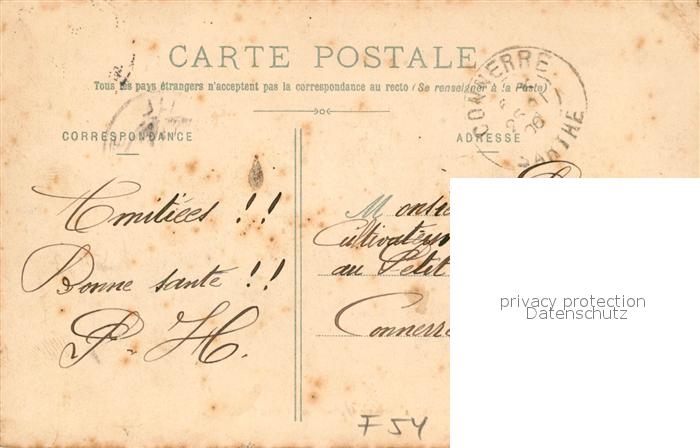 CARTE POSTALE
Tous les pays étrangers n'acceptent pas la correspondance au recto (Se renseigner à la Poste)
CORRESPONDANCE
ADRESSE
CONNERRE
SARTHE
Amitiées !!
Bonne sante !!
P. H.
Cultivateur
au Petit
Connerré
privacy protection
Datenschutz
F 54